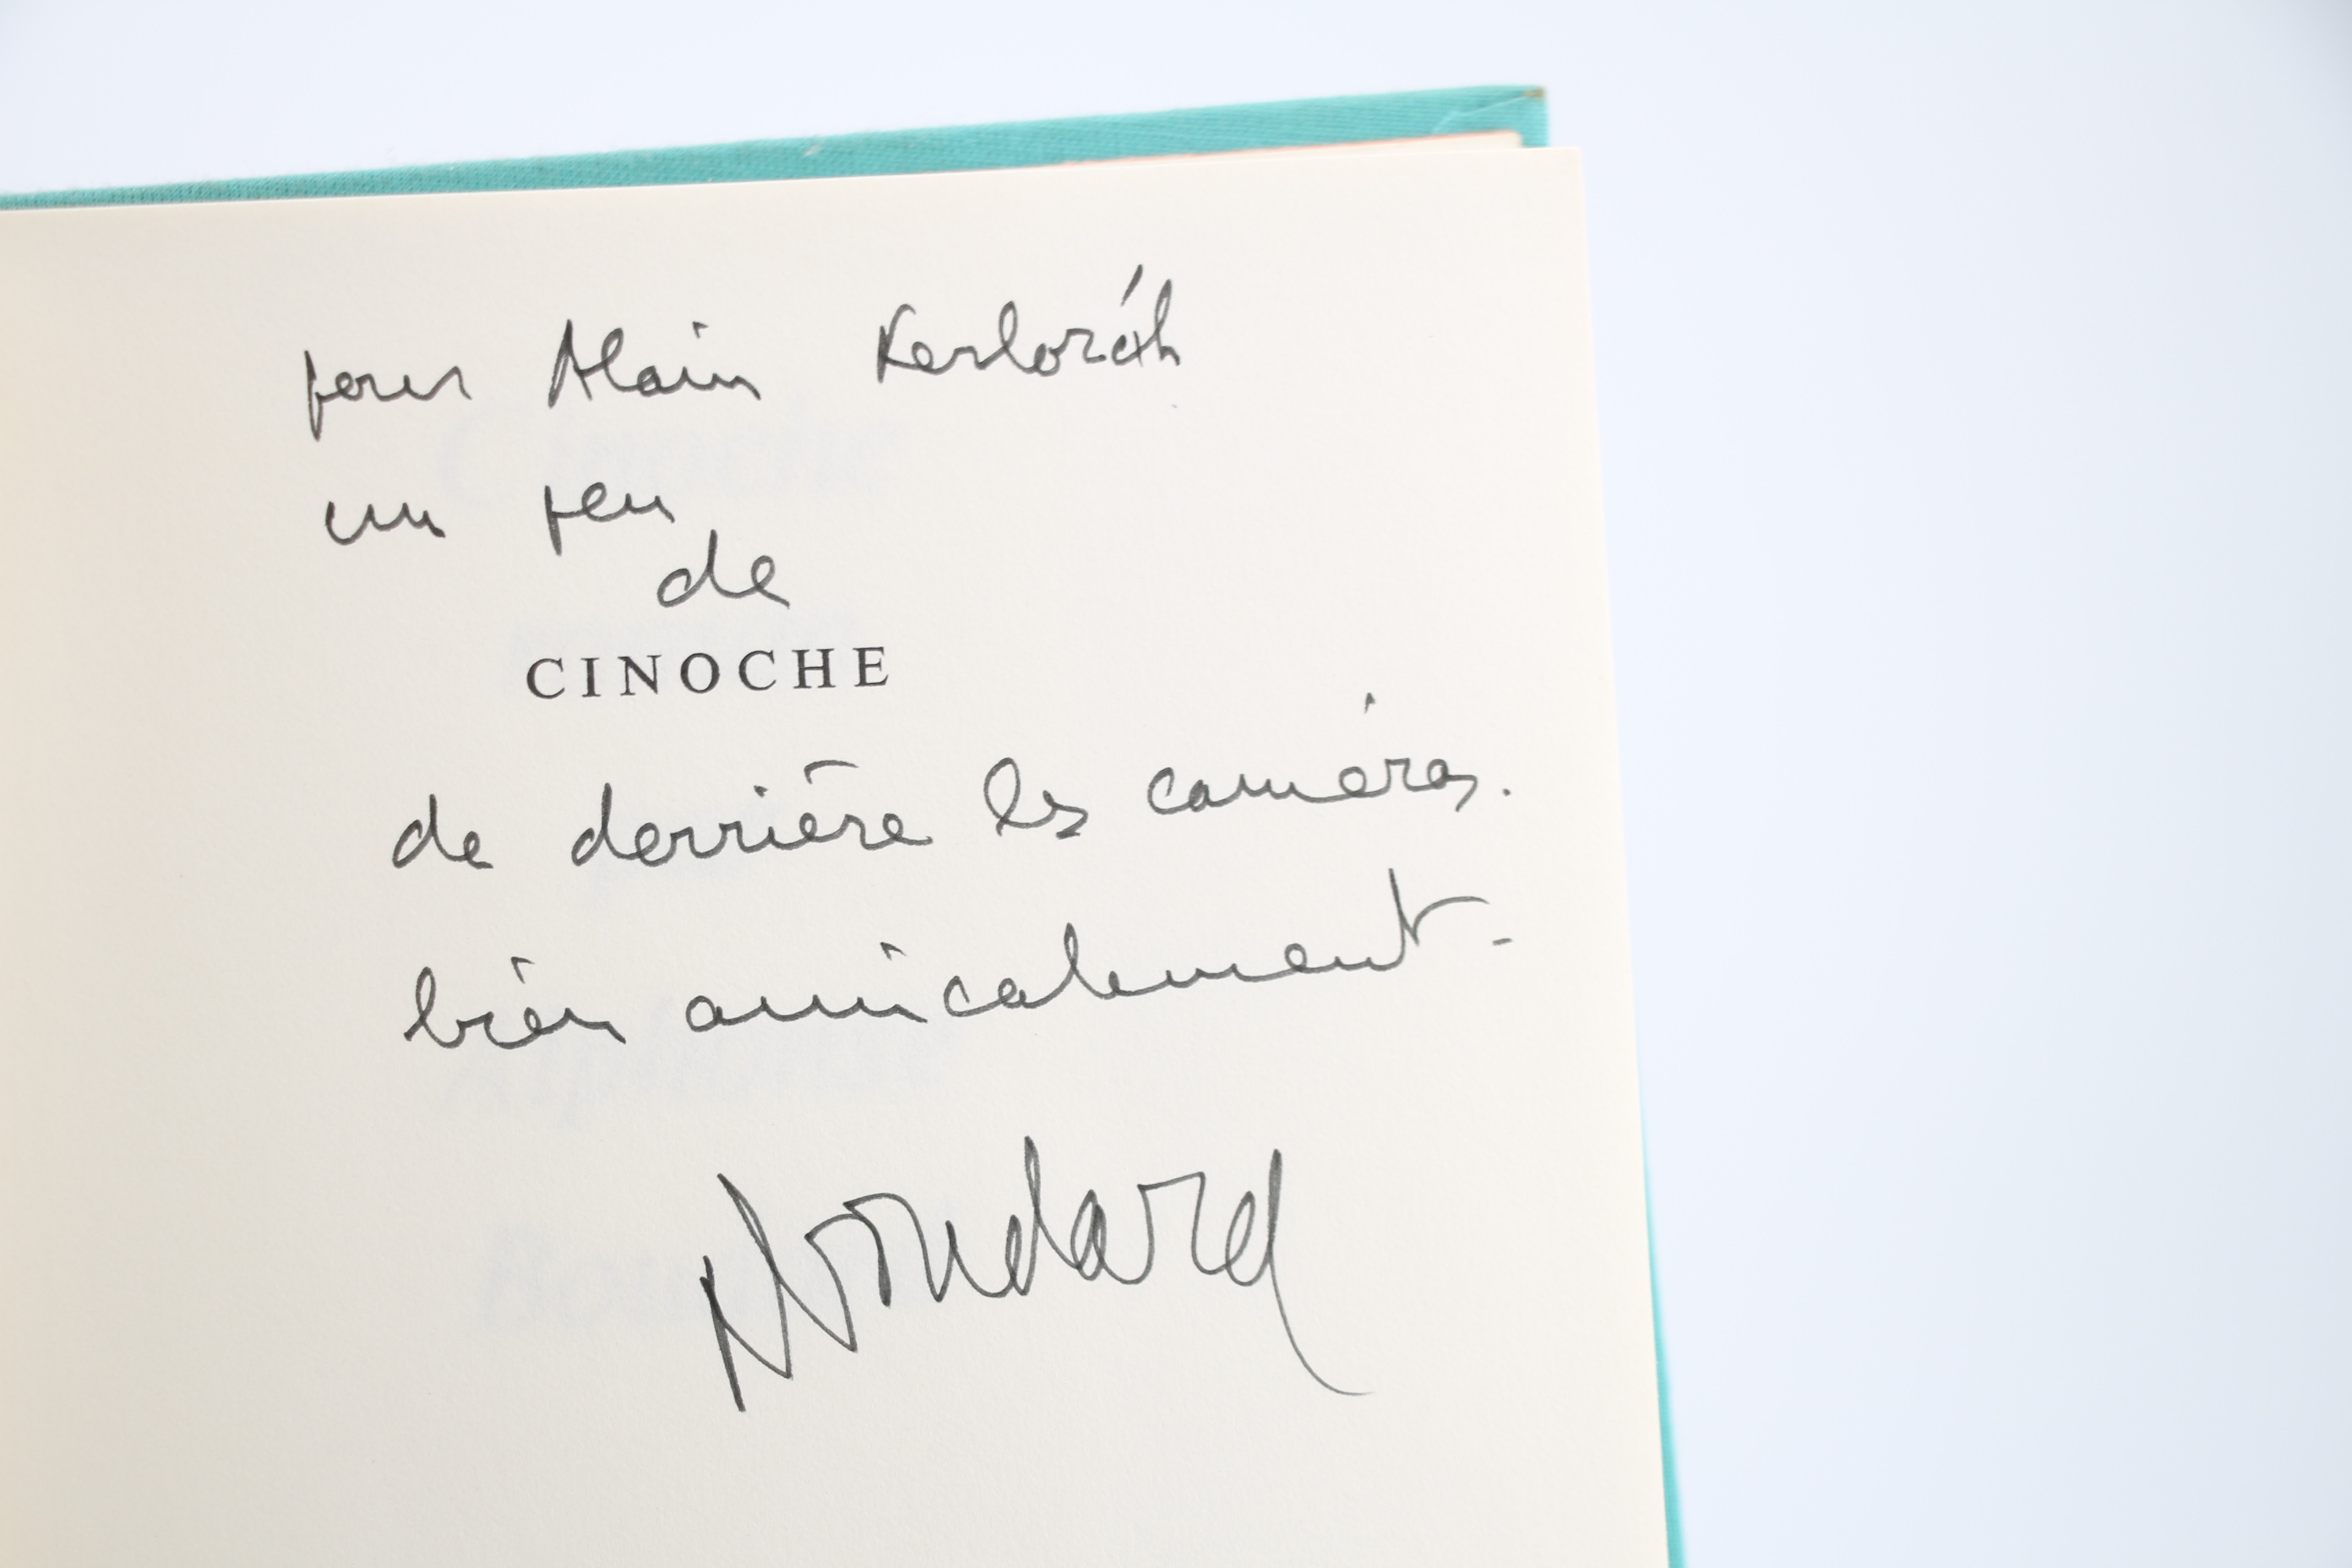 pour Alain
un peu
de
CINOCHE
de derrière les caméras.
bien amicalement -
Boudard